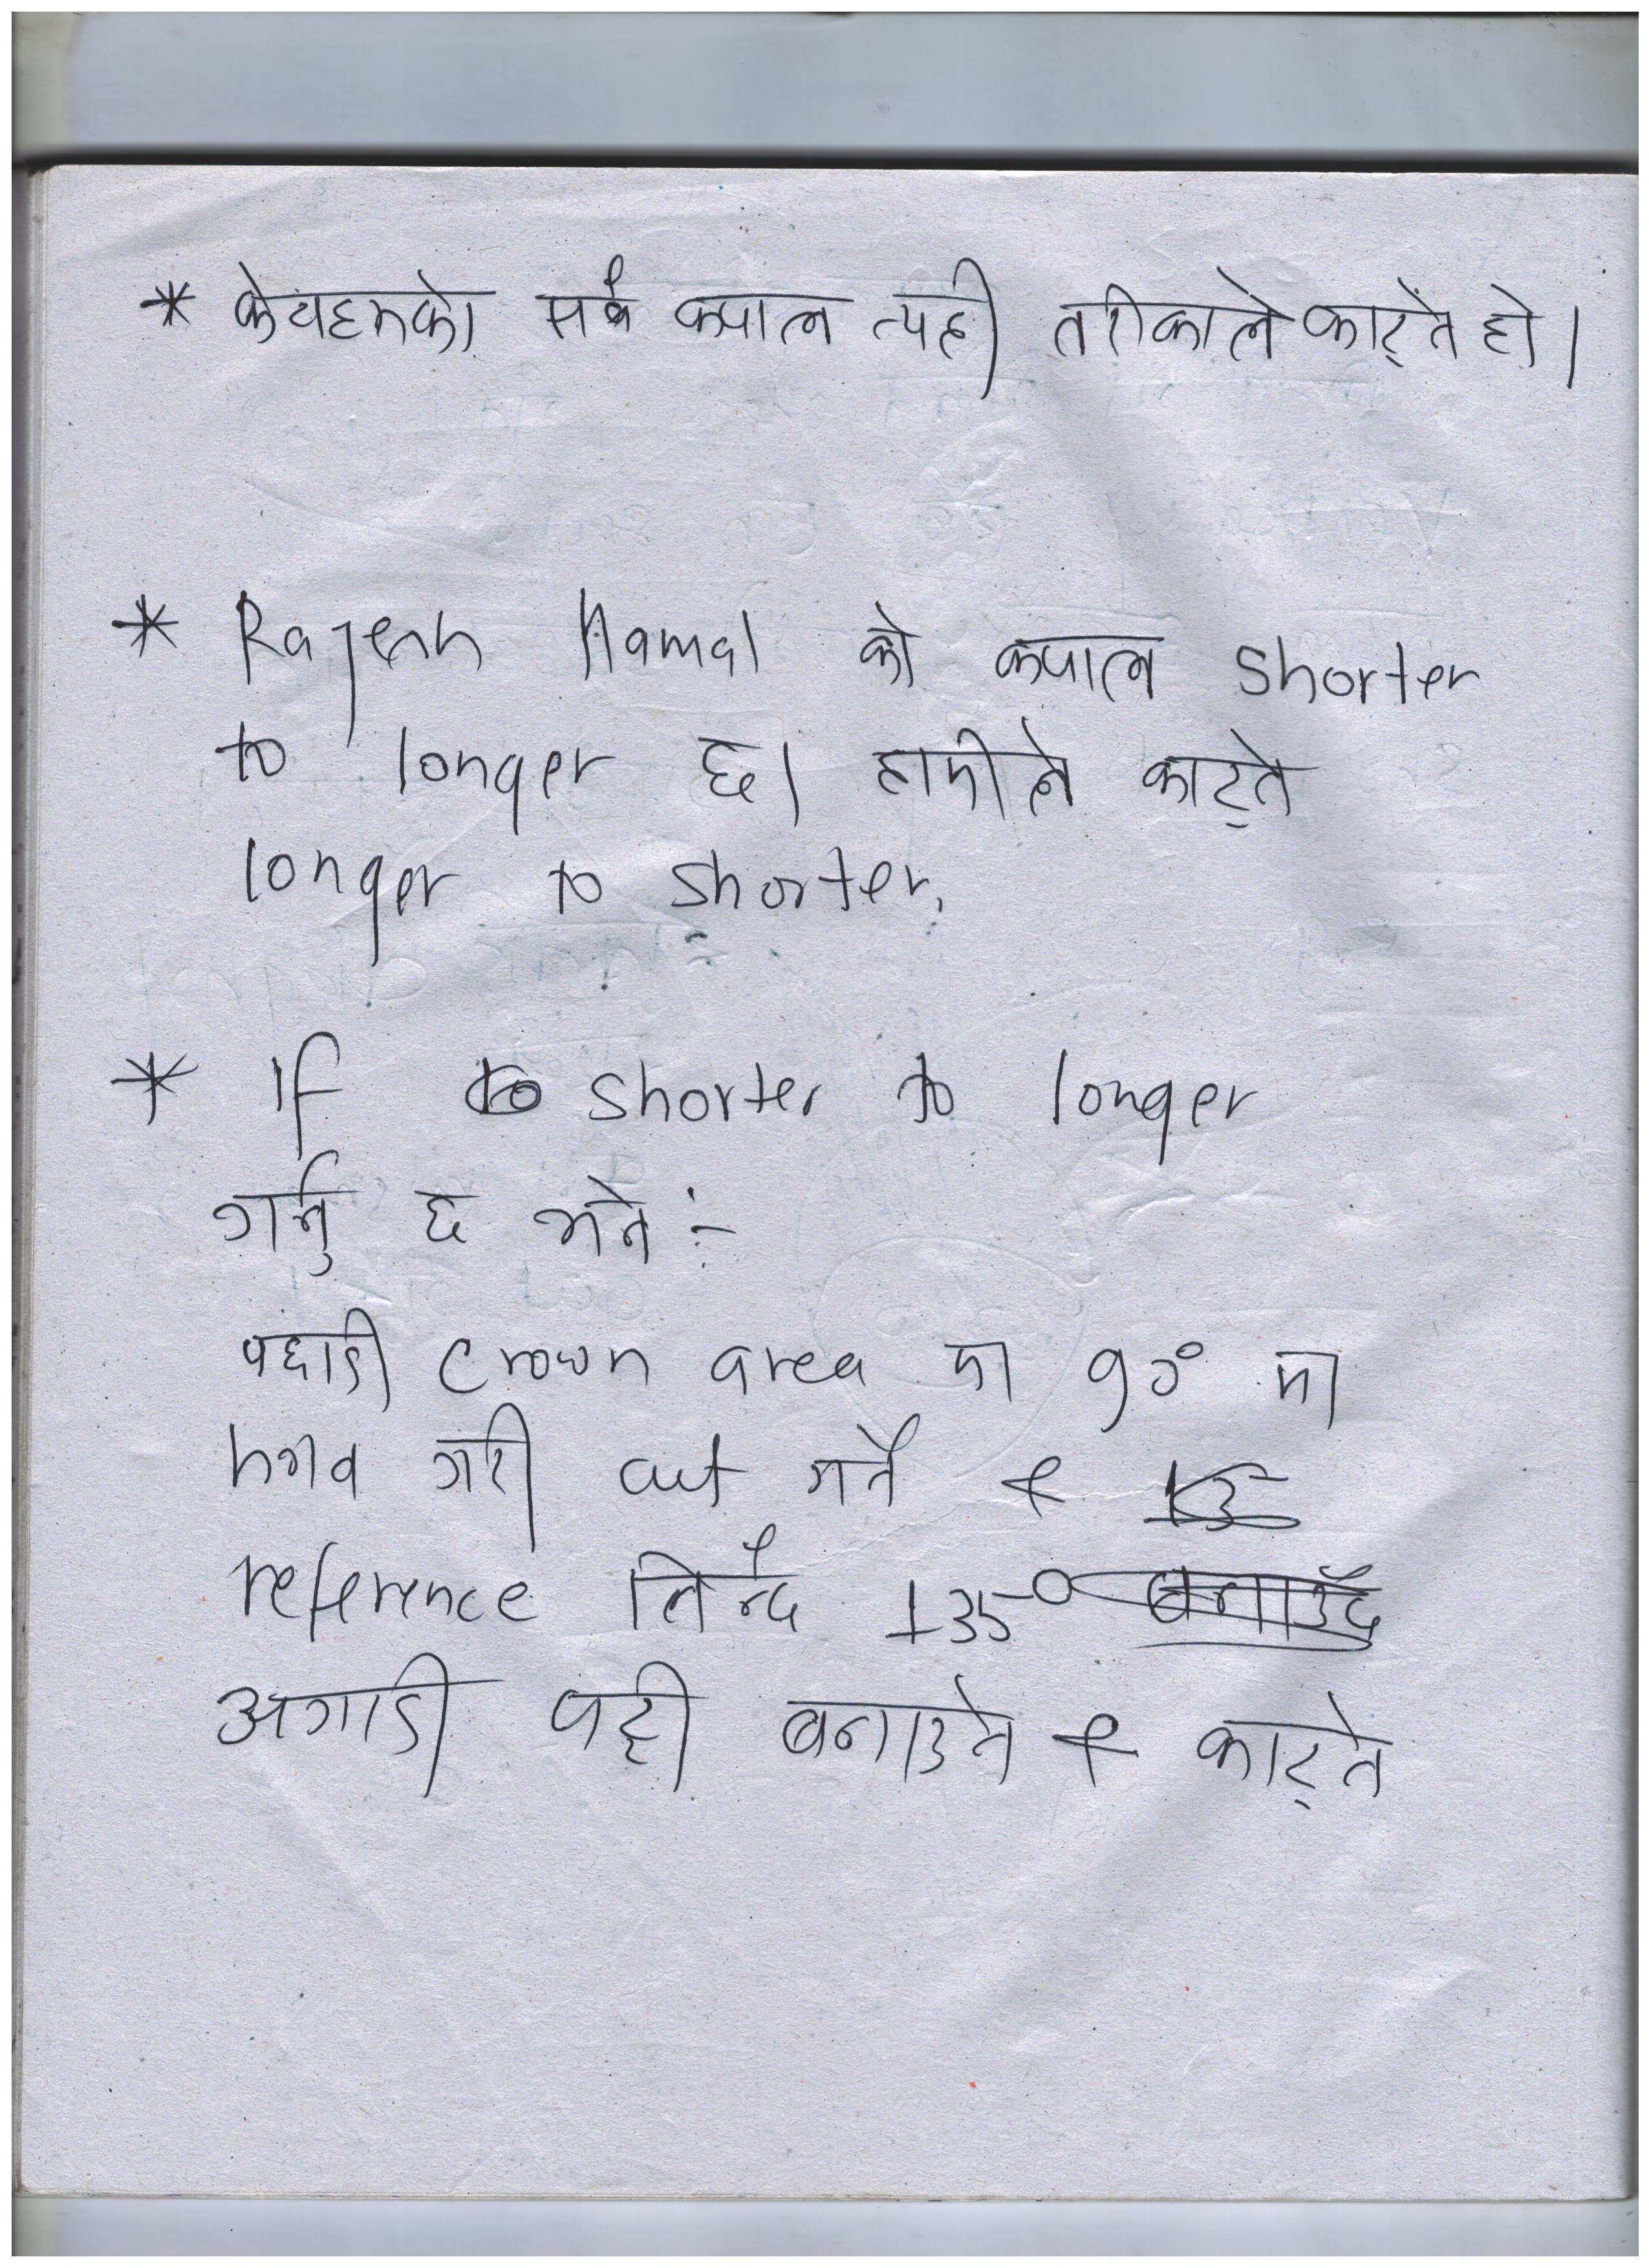 * सबै कपाल त्यही तरीकाले काट्ने हो।
* Rajesh Hamal को कपाल shorter
to longer छ। हामीले काट्ने
longer to shorter.
* If shorter to longer
गर्नु छ भने :-
पछाडी crown area मा 90° मा
गरी cut गर्ने &
reference लिन्दै 135°
अगाडी पट्टी बनाउने & काट्ने